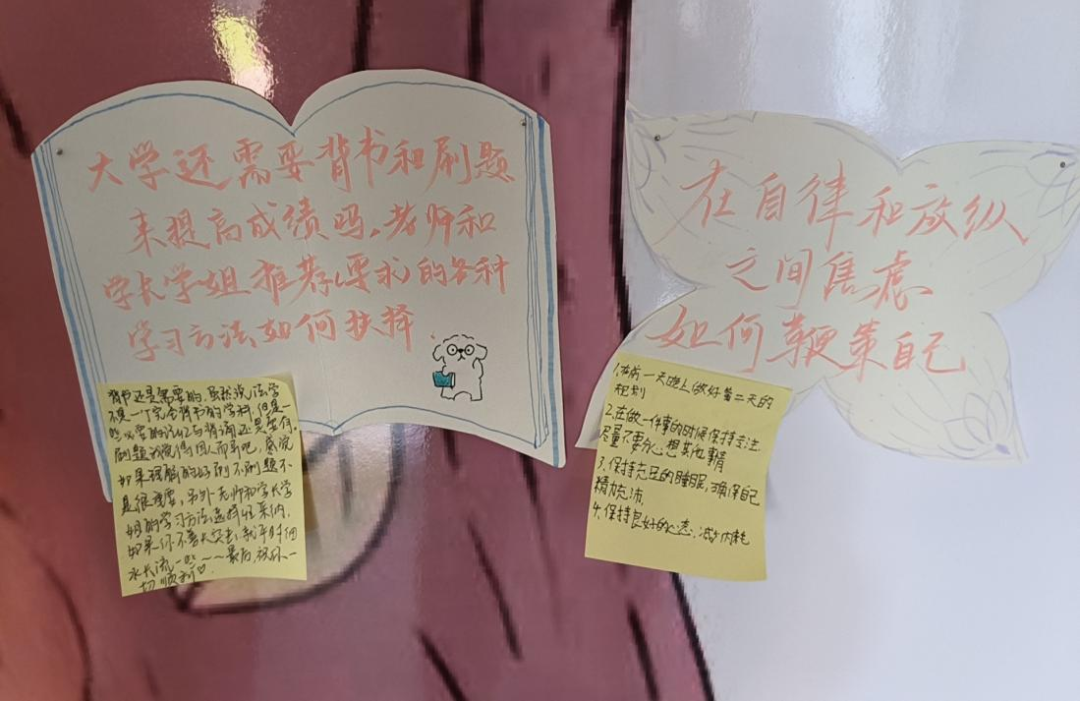 大学还需要背书和刷题
来提高成绩吗,老师和
学长学姐推荐(要求)的各种
学习方法如何抉择
背书还是需要的,虽然说法学
不是一门完全背书的学科,但是一
些必要的记忆与背诵还是要有。
刷题我觉得因人而异吧,感觉
如果理解的好刷不刷题不
是很重要,另外老师和学长学
姐的学习方法选择性采纳,
如果你不喜欢突击,就平时细
水长流一些~~最后,祝你一
切顺利
在自律和放纵
之间焦虑
如何鞭策自己
1.在前一天晚上做好第二天的
规划
2.在做一件事的时候保持专注
尽量不要分心想其他事情
3.保持充足的睡眠,确保自己
精力充沛
4.保持良好的心态,减少内耗